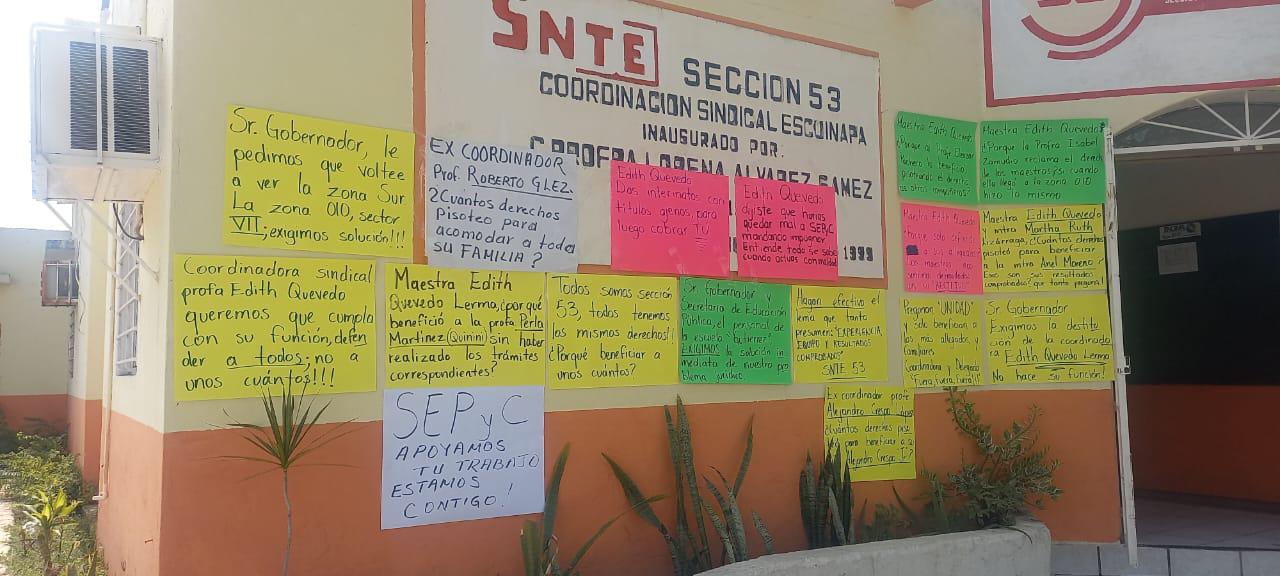 SNTE
SECCION 53
COORDINACION SINDICAL ESCUINAPA
INAUGURADO POR.
C. PROFRA LORENA ALVAREZ GAMEZ
1999
Sr. Gobernador, le
pedimos que voltee
a ver la zona Sur
La zona 010, sector
VII; exigimos solución!!!
EX COORDINADOR
Prof. ROBERTO GLEZ.
¿Cuántos derechos
Pisoteo para
acomodar a toda
su FAMILIA?
Edith Quevedo
Dos interinatos con
títulos ajenos, para
luego cobrar TU
Edith Quevedo
dijiste que nunca
quedar mal a SEPyC
mandando impugner
Entiende todo se sabe
cuando actuas con maldad
Maestra Edith Quevedo
¿Porque la Profra Isabel
Zamudio reclama el derech
de los maestros; si cuando
ella llegó a la zona 010
hizo lo mismo
Maestra Edith Quevedo
Maestra Edith Quevedo
y mtra Martha Ruth
Lizárraga, ¿Cuántos derechos
pisoteó para beneficiar
a la mtra Anel Moreno?
Esos son sus resultados
comprobados? que tanto pregona!
Coordinadora sindical
profa Edith Quevedo
queremos que cumpla
con su función, defen
der a todos; no a
unos cuántos!!!
Maestra Edith
Quevedo Lerma, ¿por qué
benefició a la profa Perla
Martinez (Quinini) sin haber
realizado los trámites
correspondientes?
Todos somos sección
53, todos tenemos
los mismos derechos!!
¿Porqué beneficiar a
unos cuantos?
Sr. Gobernador y
Secretaria de Educación
Pública, el personal de
la escuela "Gutierrez"
EXIGIMOS la solución in
mediata de nuestro pro
blema
Hagan efectivo el
lema que tanto
presumen: "EXPERIENCIA,
EQUIPO Y RESULTADOS
COMPROBADOS"
SNTE 53
Pregonan "UNIDAD"
y solo benefician a
los mas allegados y
familiares
Coordinadora y Delegado
¡Fuera, fuera, fuera!!
Sr. Gobernador
Exigimos la destitu
ción de la coordinado
ra Edith Quevedo Lerma
No hace su función!
SEPyC
APOYAMOS
TU TRABAJO
ESTAMOS
CONTIGO!
Ex coordinador profe
Alejandro Crespo
¿Cuántos derechos piso
para beneficiar a su
Alejandro Crespo